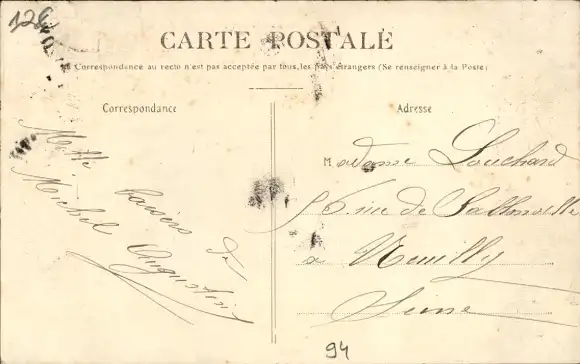 128
CARTE POSTALE
Correspondance au recto n'est pas acceptée par tous les Pays étrangers (Se renseigner à la Poste)
Correspondance
Adresse
Mille baisers de
Michel Augustin
Madame Louchard
56 rue de Sablonville
a Neuilly
Seine
94